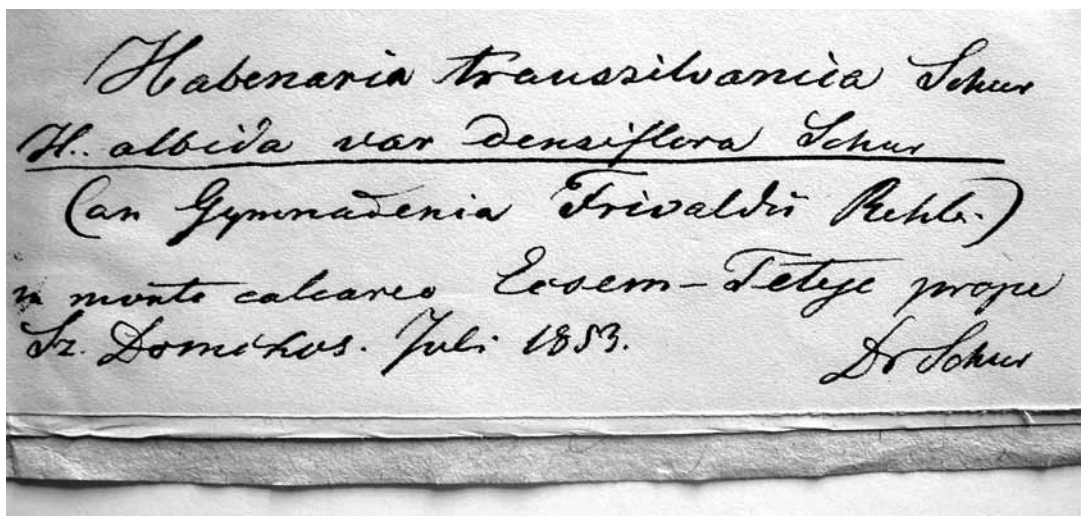 Habenaria transsilvanica Schur
H. albida var densiflora Schur
(an Gymnadenia Frivaldii Rchb.)
in monte calcareo Ecsem-Teteje prope
Sz. Domokos. Juli 1853. Dr Schur